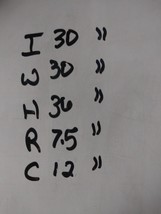 I 30 "
W 30 "
H 36 "
R 7.5 "
C 12 "